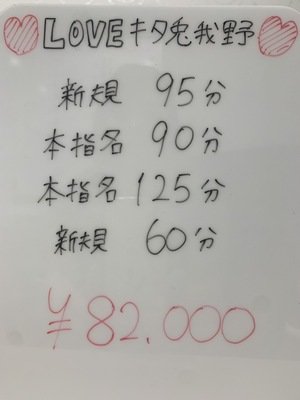 LOVEキタ兎我野
新規 95分
本指名 90分
本指名 125分
新規 60分
¥82.000